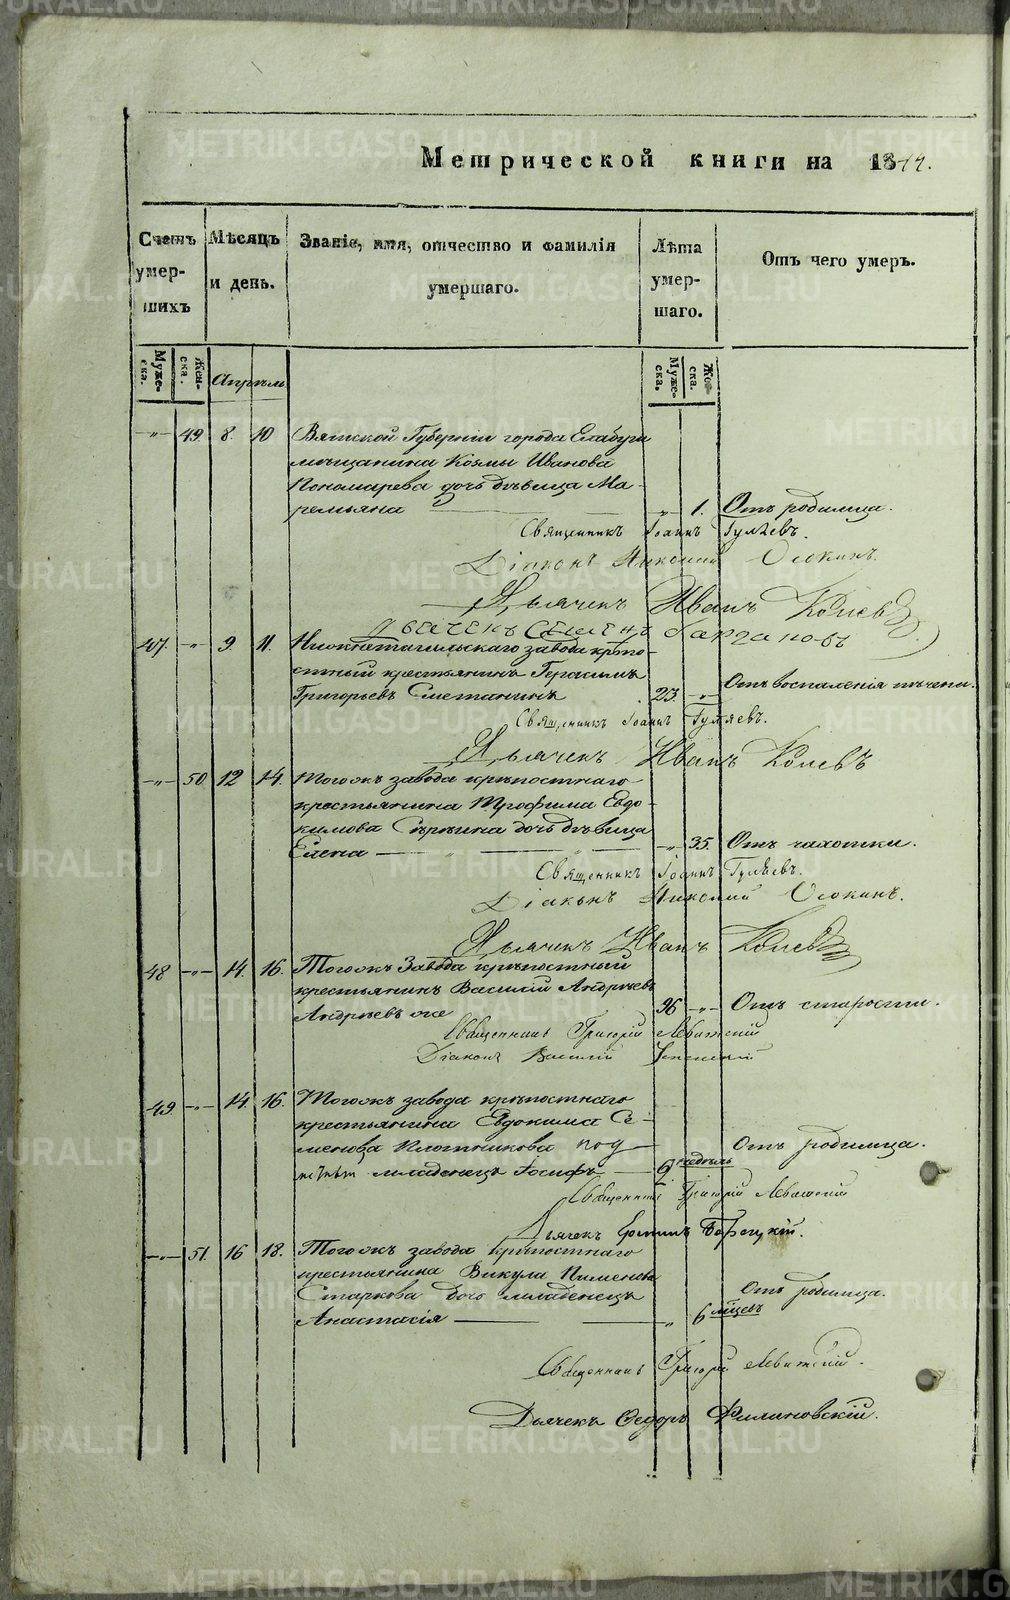 Метрической книги на 1844.
Счетъ умер- шихъ
Мѣсяцъ и день.
Званіе, имя, отчество и фамилія умершаго.
Лѣта умер- шаго.
Отъ чего умеръ.
Муже- ска.
Жен- ска.
Апрѣль
Муже- ска.
Же- ска.
-"- 49. 8. 10 Вятской Губерніи города Елабуги
мѣщанина Козмы Иванова
Пономарева дочь дѣвица Ма-
ремьяна " 1. Отъ родимца.
Священникъ Іоаннъ Гуляевъ.
Діаконъ Николай Осокинъ.
Дьячекъ Иванъ Колмевъ
47. -"- 9. 11. Нижнетагильскаго завода крѣпо-
стный крестьянинъ Герасимъ
Григорьевъ Сметанинъ 23. -"- Отъ воспаленія печени.
Священникъ Іоаннъ Гуляевъ.
Дьячекъ Иванъ
-"- 50 12 14. Тогожъ завода крѣпостнаго
крестьянина Трофима Евдо-
кимова дочь дѣвица
Елена -"- 35. Отъ чахотки.
Священникъ Іоаннъ Гуляевъ.
Діаконъ Николай Осокинъ.
Дьячекъ Иванъ
48 -"- 14. 16. Тогожъ Завода крѣпостный
крестьянинъ Василій Андреевъ
Андреевъ же 96 -"- Отъ старости.
Священникъ Григорій Левитскій
Діаконъ Василій
49 -"- 14. 16. Тогожъ завода крѣпостнаго
крестьянина Евдокима Се-
менова Плотникова под
младенецъ Іосифъ 9 недѣль Отъ родимца.
Священникъ Григорій Левитскій
Дьячекъ
-"- 51. 16 18. Тогожъ завода крѣпостнаго
крестьянина Викулы Пименова
Старкова дочь младенецъ
Анастасія " 6 мѣсцевъ Отъ родимца.
Священникъ Григорій Левитскій.
Дьячекъ Ѳедоръ Филиновскій.
METRIKI.GASO-URAL.RU